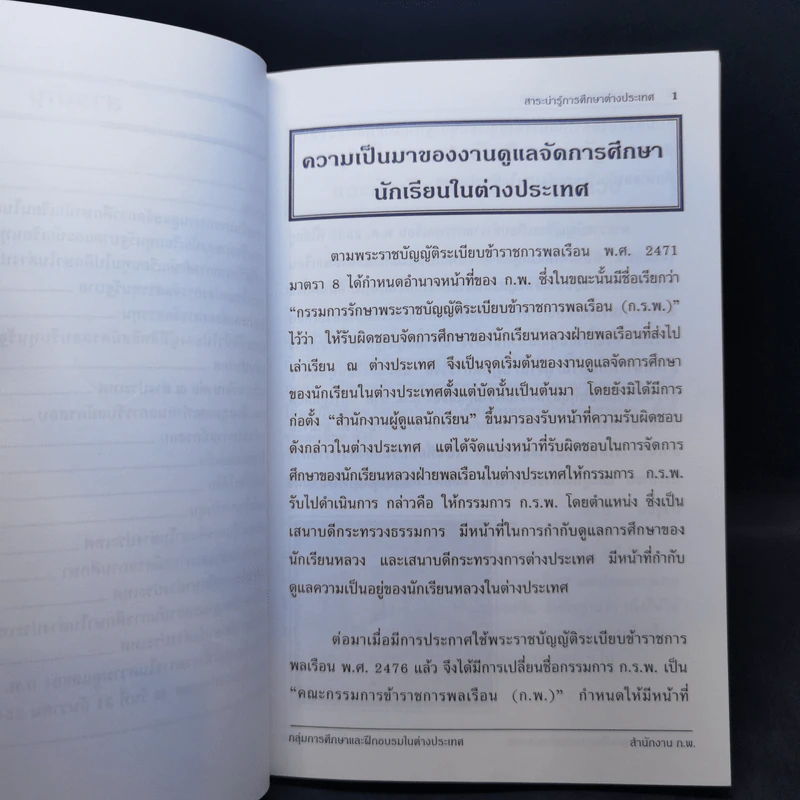 สาระน่ารู้การศึกษาต่างประเทศ 1
ความเป็นมาของงานดูแลจัดการศึกษา
นักเรียนในต่างประเทศ
ตามพระราชบัญญัติระเบียบข้าราชการพลเรือน พ.ศ. 2471
มาตรา 8 ได้กำหนดอำนาจหน้าที่ของ ก.พ. ซึ่งในขณะนั้นมีชื่อเรียกว่า
“กรรมการรักษาพระราชบัญญัติระเบียบข้าราชการพลเรือน (ก.ร.พ.)”
ไว้ว่า ให้รับผิดชอบจัดการศึกษาของนักเรียนหลวงฝ่ายพลเรือนที่ส่งไป
เล่าเรียน ณ ต่างประเทศ จึงเป็นจุดเริ่มต้นของงานดูแลจัดการศึกษา
ของนักเรียนในต่างประเทศตั้งแต่บัดนั้นเป็นต้นมา โดยยังมิได้มีการ
ก่อตั้ง “สำนักงานผู้ดูแลนักเรียน” ขึ้นมารองรับหน้าที่ความรับผิดชอบ
ดังกล่าวในต่างประเทศ แต่ได้จัดแบ่งหน้าที่รับผิดชอบในการจัดการ
ศึกษาของนักเรียนหลวงฝ่ายพลเรือนในต่างประเทศให้กรรมการ ก.ร.พ.
รับไปดำเนินการ กล่าวคือ ให้กรรมการ ก.ร.พ. โดยตำแหน่ง ซึ่งเป็น
เสนาบดีกระทรวงธรรมการ มีหน้าที่ในการกำกับดูแลการศึกษาของ
นักเรียนหลวง และเสนาบดีกระทรวงการต่างประเทศ มีหน้าที่กำกับ
ดูแลความเป็นอยู่ของนักเรียนหลวงในต่างประเทศ
ต่อมาเมื่อมีการประกาศใช้พระราชบัญญัติระเบียบข้าราชการ
พลเรือน พ.ศ. 2476 แล้ว จึงได้มีการเปลี่ยนชื่อกรรมการ ก.ร.พ. เป็น
“คณะกรรมการข้าราชการพลเรือน (ก.พ.)” กำหนดให้มีหน้าที่
กลุ่มการศึกษาและฝึกอบรมในต่างประเทศ สำนักงาน ก.พ.